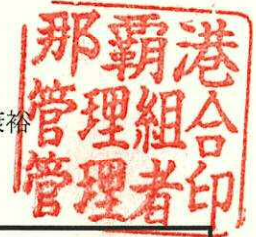 那覇港
管理組合
管理者印
裕